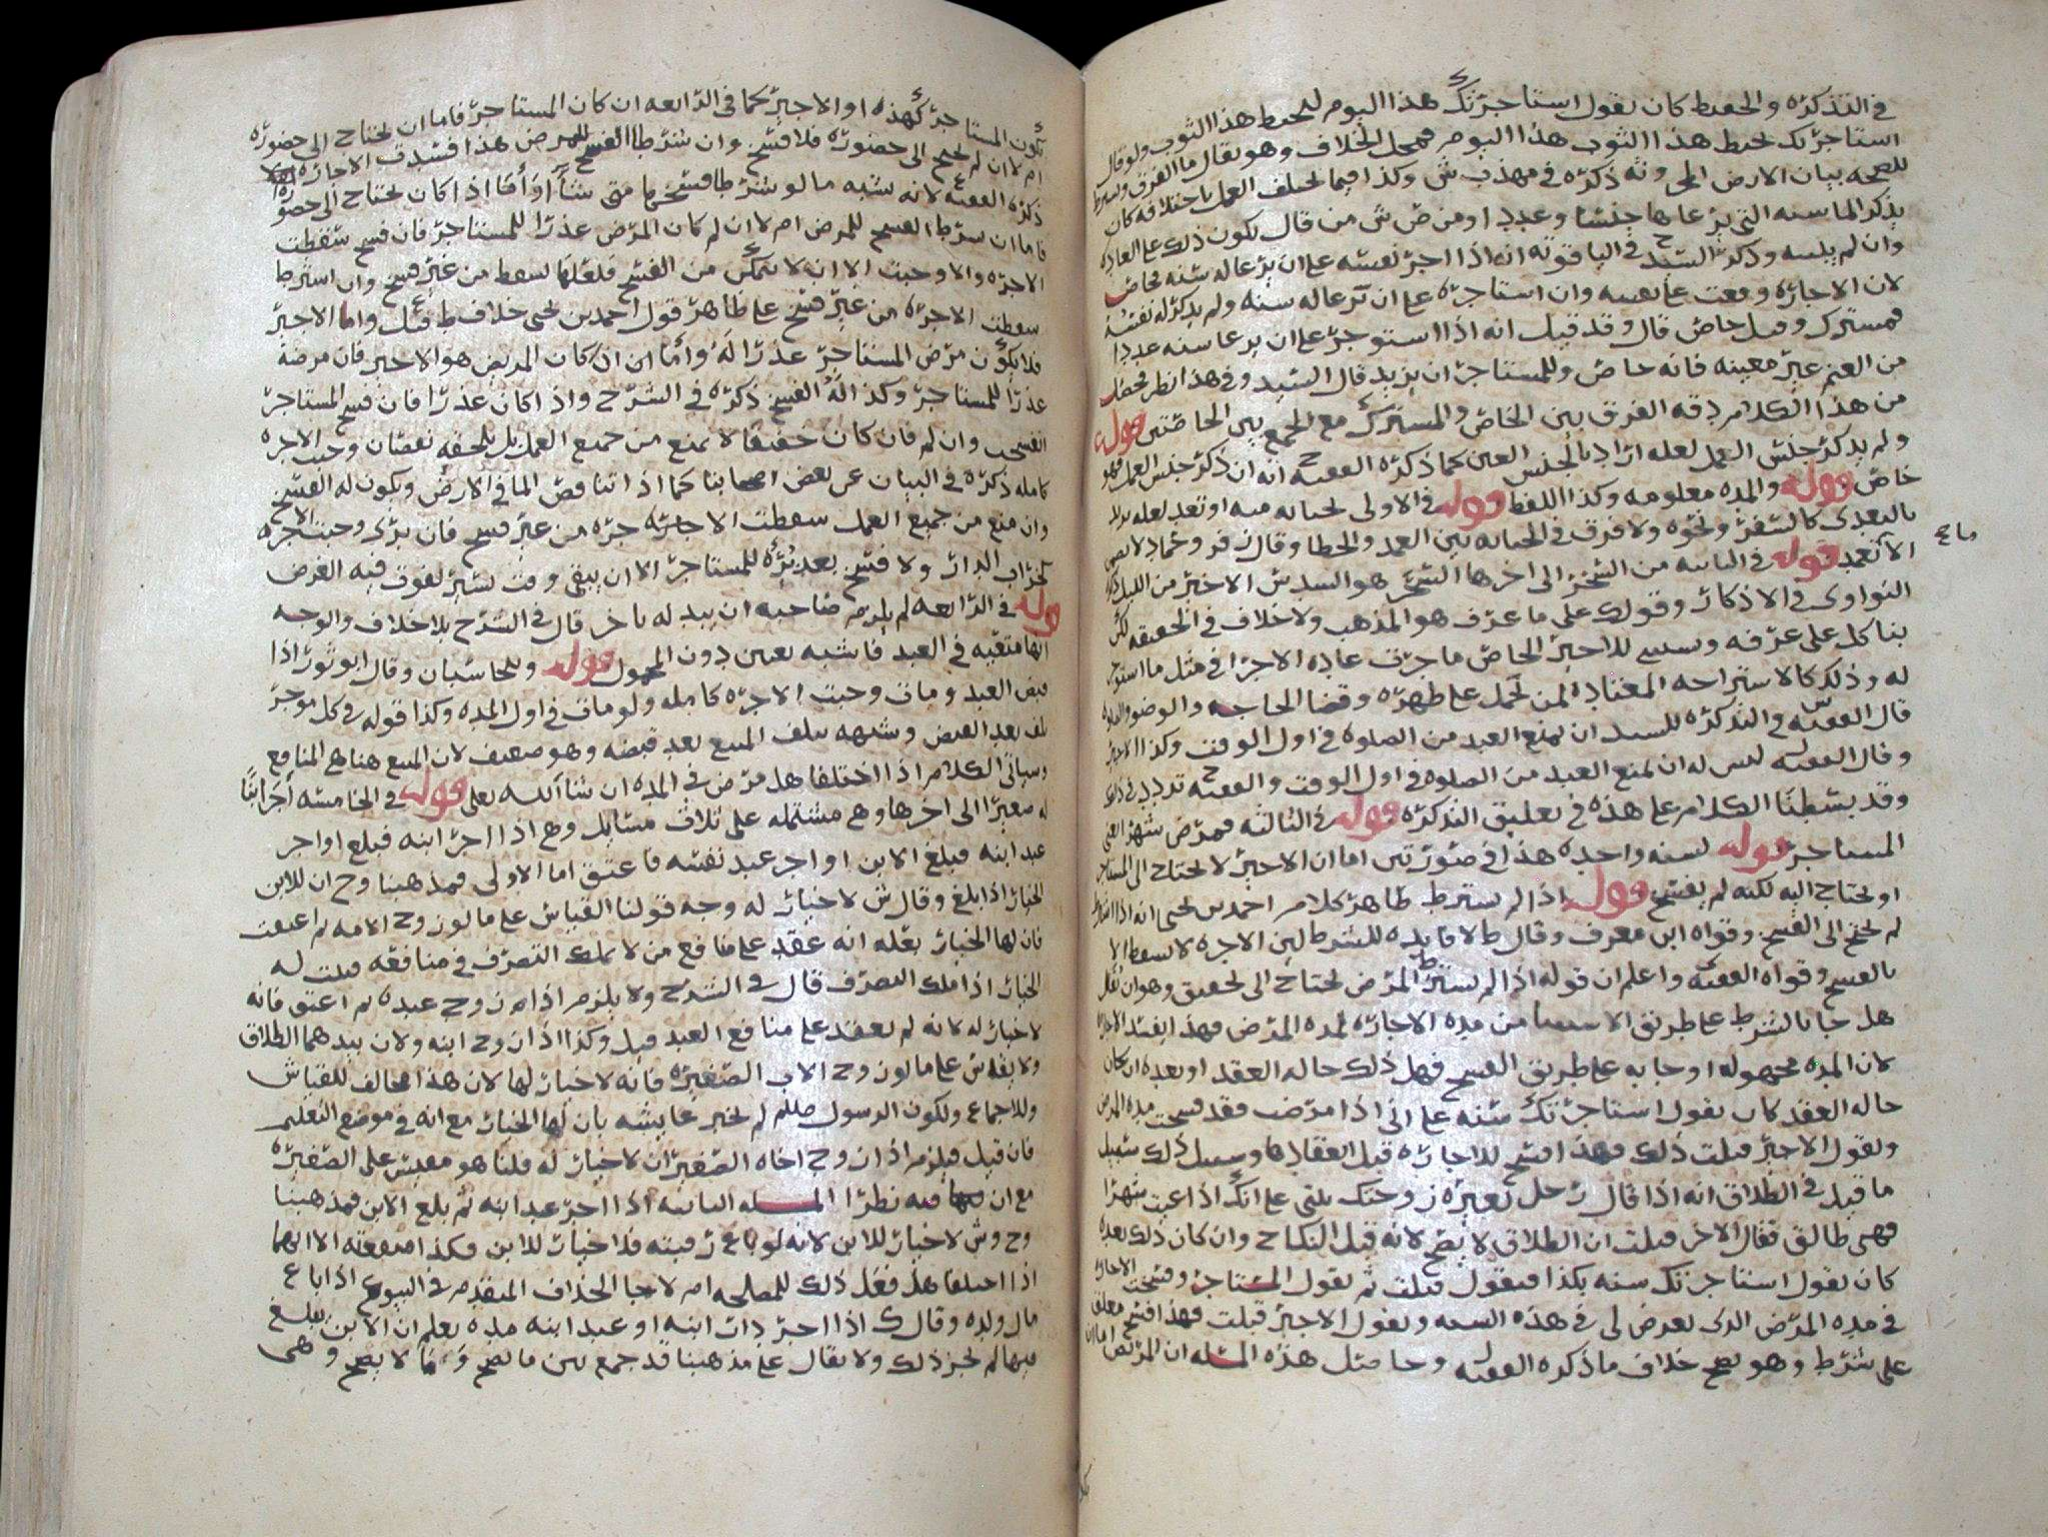 في التذكره والحفيط كان يقول استاجرتك هذا اليوم لتخيط هذا الثوب ولو قال
استاجرتك لخيط هذا الثوب هذا اليوم فمحل الخلاف وهو يقال ما الفرق ويشترط
للصحه بيان الارض الى ذكره في مهذب ش وكذا فيما يختلف العمل باختلافه كان
يذكر الماسيه التي يرعاها جنسا وعددا ومن ض ش من قال يكون ذلك على العاده
وان لم يبينه وذكر السيد في الياقوته انه اذا اجر نفسه على ان يرعا له سنه فخاص
لان الاجاره وقعت على نفسه وان استاجره على ان يرعا له سنه ولم يذكر له نفسه
فمشترك وقيل خاص قال وقد قيل انه اذا استوجر على ان يرعا سنه عددا
من الغنم غير معينه فانه خاص وللمستاجر ان يزيد قال السيد وفي هذا نظر فحصل
من هذا الكلام دقه الفرق بين الخاص والمشترك مع الجمع بين الخاصتين قوله
ولم يذكر جنس العمل لعله اراد بالجنس العين كما ذكره الفقيه ح انه ان ذكر جنس العمل فهو
خاص قوله والمده معلومه وكذا اللفظ قوله في الاولى لخيانه منه او تعد لعله يريد
بالتعدي كالسفر ونحوه ولا فرق في الخيانه بين العمد والخطا وقال زفر وحماد لا يضمن
الا لتعمد قوله في الثانيه من السحر الى اخرها السحر هو السدس الاخير من الليل ذكره
النواوي في الاذكار وقوله على ما عرف هو المذهب ولا خلاف في الحقيقه لكن
بنا كل على عرفه ويستثنى للاجير الخاص ما جرت عاده الاجرا في مثل ما استوجر
له وذلك كالاستراحه المعتاده لمن يحمل على ظهره وقضا الحاجه والوضوء والصلوه
قال الفقيه س والتذكره للسيد ان يمنع العبد من الصلوه في اول الوقت وكذا الاجير
وقال الفقيه ل ليس له ان يمنع العبد من الصلوه في اول الوقت والفقيه ح تردد في ذلك
وقد بسطنا الكلام على هذه في تعليق التذكره قوله في الثالثه فمرض شهرا العين
المستاجر قوله لسنه واحده هذا في صورتين اما ان الاجير لا يحتاج الى المستاجر
او يحتاج اليه لكنه لم يفسخ قوله اذا لم يشترط ظاهر كلام احمد بن يحيى انه اذا اشترط
لم يحتج الى الفسخ وقواه ابن معرف وقال ط لا فايده للشرط لان الاجره لا تسقط الا
بالفسخ وقواه الفقيه ى واعلم ان قوله اذا لم يشترط المرض يحتاج الى تحقيق وهو ان نقول
هل جا بالشرط على طريق الاستثنا من مده الاجاره لمده المرض فهذا يفسد الاجاره
لان المده مجهوله او جا به على طريق الفسخ فهل ذلك حاله العقد او بعده ان كان
حاله العقد كان يقول استاجرتك سنه على اني اذا مرضت فقد فسخت مده المرض
ويقول الاجير قبلت ذلك فهذا فسخ للاجاره قبل انعقادها وسبيل ذلك سبيل
ما قيل في الطلاق انه اذا قال رجل لغيره زوجتك بنتي على انك اذا غبت شهرا
فهي طالق فقال الاخر قبلت ان الطلاق لا يصح لانه قبل النكاح وان كان ذلك بعده
كان يقول استاجرتك سنه بكذا فيقول قبلت ثم يقول المستاجر وفسخت الاجاره
في مده المرض الذي يعرض لي في هذه السنه ويقول الاجير قبلت فهذا فسخ معلق
على شرط وهو يصح خلاف ما ذكره الفقيه ل وحاصل هذه المسله ان المريض اما ان
يكون المستاجر كهذه او الاجير كما في الرابعه ان كان المستاجر فاما ان يحتاج الى حضوره
ام لا ان لم يحتج الى حضوره فلا فسخ وان شرط الفسخ للمرض هذا فسدت الاجاره
ذكره الفقيه ع لانه شبه ما لو شرطا فسخها متى شآ او أما اذا كان يحتاج الى حضوره
فاما ان شرط الفسخ للمرض ام لا ان لم كان المرض عذرا للمستاجر فان فسخ سقطت
الاجره والا وجبت الا ان لا يتمكن من الفسخ فلعلها تسقط من غير فسخ وان اشترط
سقطت الاجره من غير فسخ على ظاهر قول احمد بن يحيى خلاف ط قيل واما الاجير
فلا يكون مرض المستاجر عذرا له وأما ان كان المريض هو الاجير فان مرضه
عذرا للمستاجر وكذا له الفسخ ذكره في الشرح واذا كان عذرا فان فسخ المستاجر
انفسخت وان لم فان كان خفيفا لا يمنع من جميع العمل بل يلحقه نقصان وجبت الاجره
كامله ذكره في البيان عن بعض اصحابنا كما اذا تناقص الما في الارض ويكون له الفسخ
وان منع من جميع العمل سقطت الاجره من غير فسخ فان برى وجبت الاجره
كخراب الدار ولا فسخ بعد برئه للمستاجر الا ان يبقى وقت يسير يفوت فيه الغرض
قوله في الرابعه لم يلزم صاحبه ان يبدله باخر قال في الشرح بلا خلاف والوجه
انها متعينه في العبد فاشبه تعين دون المحمول قوله وللحاسبان وقال ابو ثور اذا
قبض العبد ومات وجبت الاجره كامله ولو مات في اول المده وكذا قوله في كل موجر
تلف بعد القبض وشبهه بتلف المبيع بعد قبضه وهو ضعيف لان المبيع هنا هي المنافع
وسياتي الكلام اذا اختلفا هل مرض في المده ان شا الله تعالى قوله في الخامسه أجر ابنًا
له صغيرا الى اخرها وهي مشتمله على ثلاث مسايل وهي اذا اجر ابنه فبلغ او اجر
عبد ابنه فبلغ الابن او اجر عبد نفسه فاعتق اما الاولى فمذهبنا وح ان للابن
الخيار اذا بلغ وقال ش لا خيار له وجه قولنا القياس على ما لو زوج الامه ثم اعتقت
فان لها الخيار بعله انه عقد على منافع من لا يملك التصرف في منافعه فثبت له
الخيار اذا ملك التصرف قال في الشرح ولا يلزم اذا زوج عبده ثم اعتق فانه
لا خيار له لانه لم يعقد على منافع العبد قيل وكذا اذا زوج ابنه ولان بيدهما الطلاق
ولا يقاس على ما لو زوج الاب الصغيره فانه لا خيار لها لان هذا مخالف للقياس
وللاجماع ولكون الرسول صللم لم يخير عايشه بان لها الخيار مع انه في موضع التعليم
فان قيل فيلزم اذا زوج اخاه الصغير ان لا خيار له قلنا هو مقيس على الصغيره
مع ان فيه نظرا المسله الثانيه اذا اجر عبد ابنه ثم بلغ الابن فمذهبنا
وح وش لا خيار للابن لانه لو باع رقبته فلا خيار للابن فكذا منفعته الا انهما
اذا اختلفا هل فعل ذلك للمصلحه ام لا جا الخلاف المتقدم في البيوع اذا باع
مال ولده وقال ك اذا اجر دات ابنه او عبد ابنه مده يعلم ان الابن يبلغ
فيها لم يجز ذلك ولا يقال على مذهبنا قد جمع بين ما يصح وما لا يصح وهي